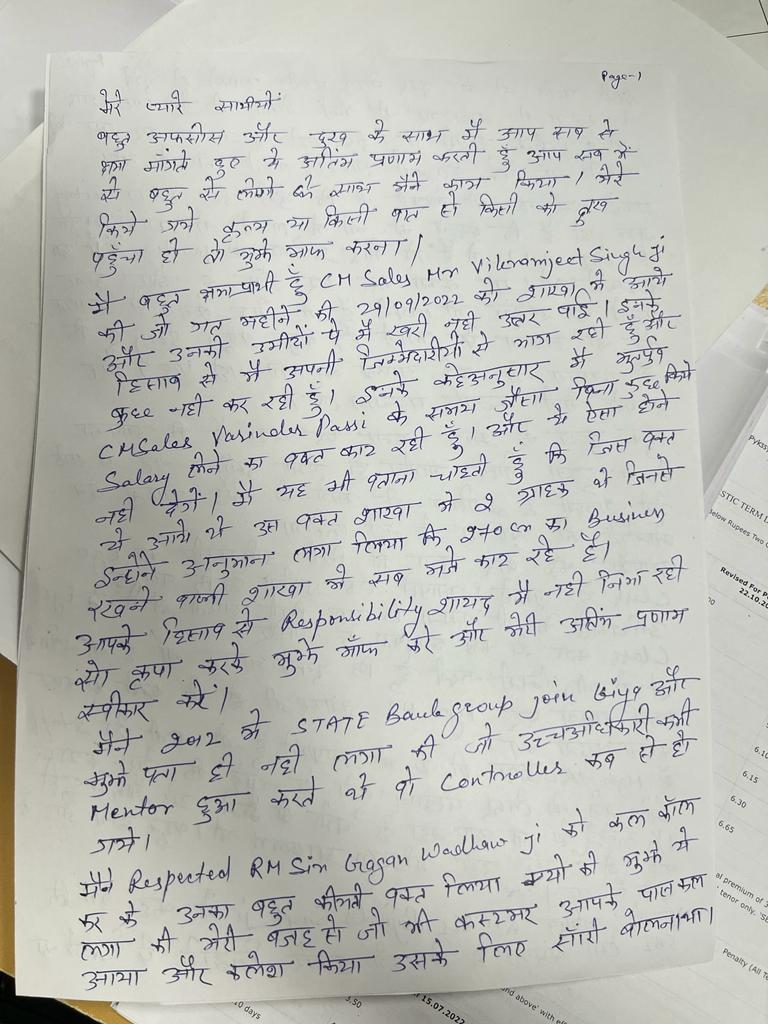 Page-1
मेरे प्यारे साथीयों
बहुत अफसोस और दुख के साथ मैं आप सब से
क्षमा मांगते हुए ये अंतिम प्रणाम करती हूँ आप सब में
से बहुत से लोगो के साथ मैंने काम किया। मेरे
किये गये कृत्य या किसी बात से किसी को दुख
पहुँचा हो तो मुझे माफ करना।
मै बहुत क्षमाप्रार्थी हूँ CM Sales Mr Vikramjeet Singh ji
की जो गत महीने की 29/09/2022 को शाखा मे आये
और उनकी उमीदों पे मै खरी नही उतर पाई। इनके
हिसाब से मै अपनी जिम्मेदारीयो से भाग रही हूँ और
कुछ नही कर रही हूँ। इनके कहेअनुसार मै भुतपुर्व
CMSales Varinder Passi के समय जैसा बिना कुछ किये
Salary लेने का वक्त काट रही हूँ। और ये ऐसा होने
नही देगें। मै यह भी बताना चाहती हूँ कि जिस वक्त
ये आये थे उस वक्त शाखा मे 2 ग्राहक थे जिनसे
इन्होने अनुमान लगा लिया कि 270 cr का Business
रखने वाली शाखा मे सब मजे काट रहे है।
आपके हिसाब से Responsibility शायद मै नही निभा रही
सो कृपा करके मुझे माँफ करे और मेरी अतिंम प्रणाम
स्वीकार करें।
मैने 2012 मे STATE Bank group join किया और
मुझे पता ही नही लगा की जो उच्चअधिकारी कभी
Mentor हुआ करते थे वो Controller कब से हो
गये।
मैने Respected RM Sir Gagan Wadhaw ji को कल कॉल
कर के उनका बहुत कीमती वक्त लिया क्यो की मुझे ये
लगा की मेरी वजह से जो भी कस्टमर आपके पास कल
आया और कलेश किया उसके लिए सॉरी बोलना था।